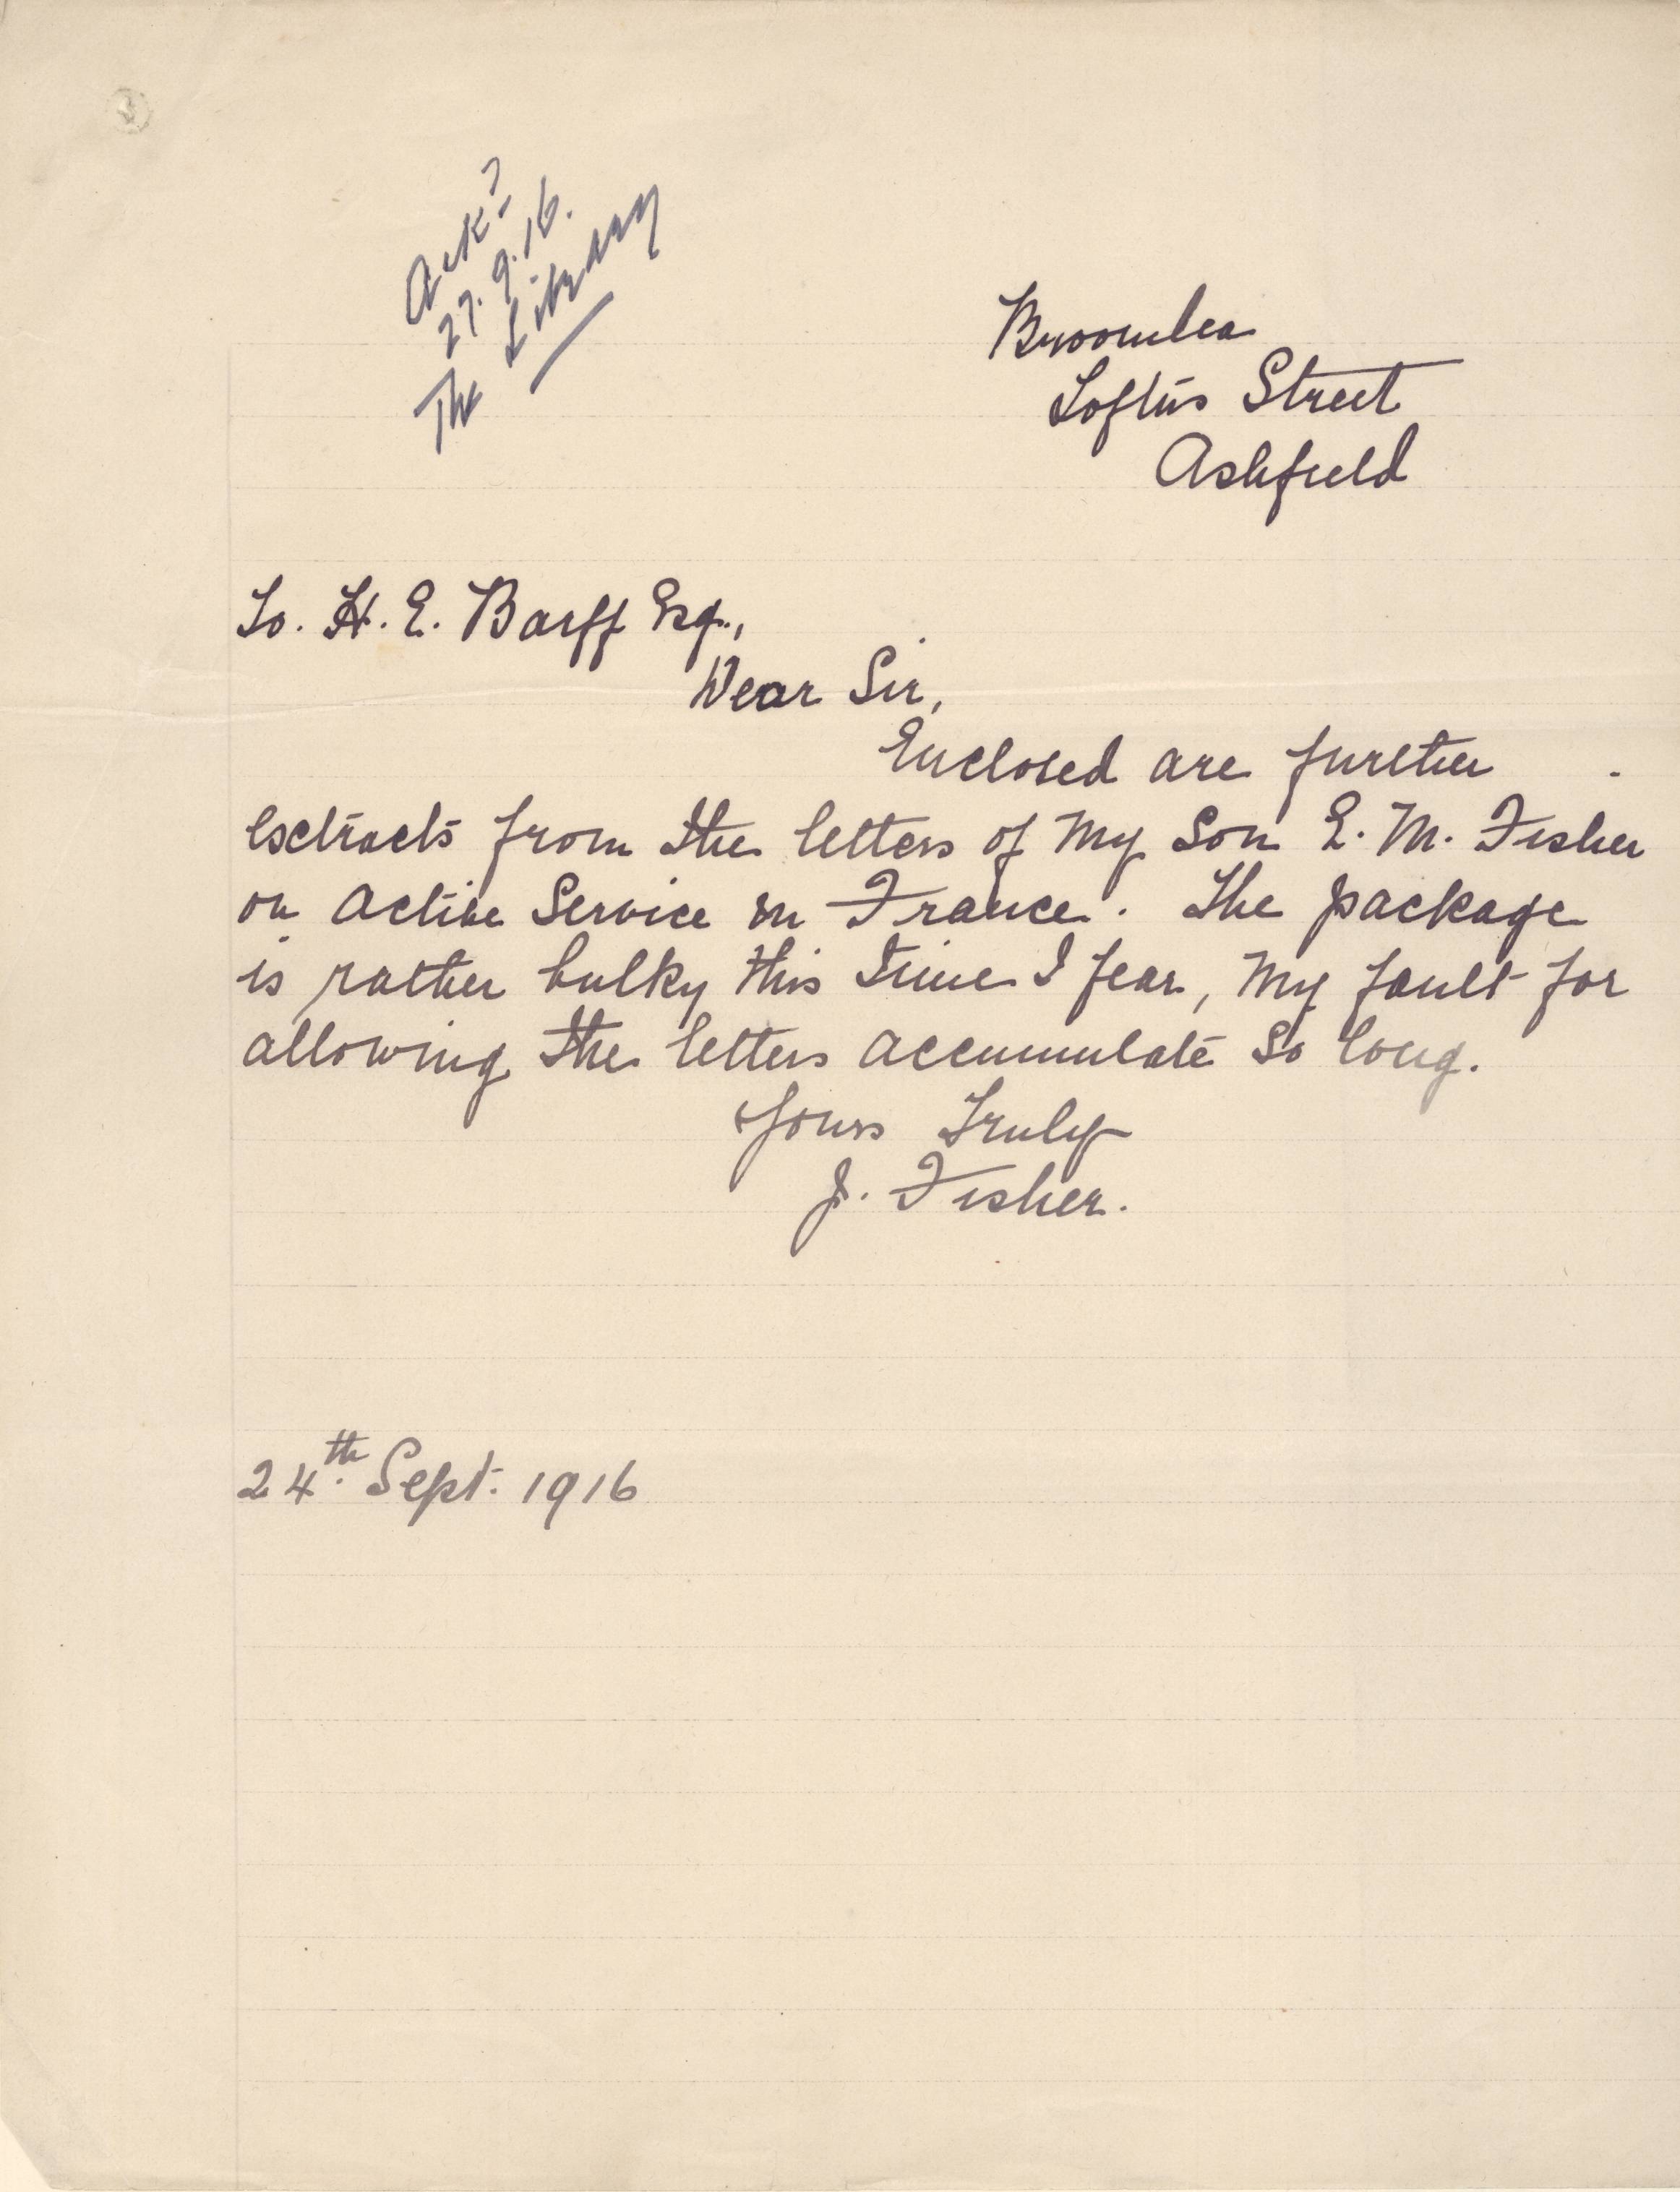 Ackd
27.9.16.
The Library
Broomlea
Loftus Street
Ashfield
To. H. E. Barff Esq.,
Dear Sir,
Enclosed are further
extracts from the letters of my Son E. M. Fisher
on Active Service in France. The package
is rather bulky this time I fear, my fault for
allowing the letters accumulate so long.
Yours Truly
J. Fisher.
24th Sept. 1916